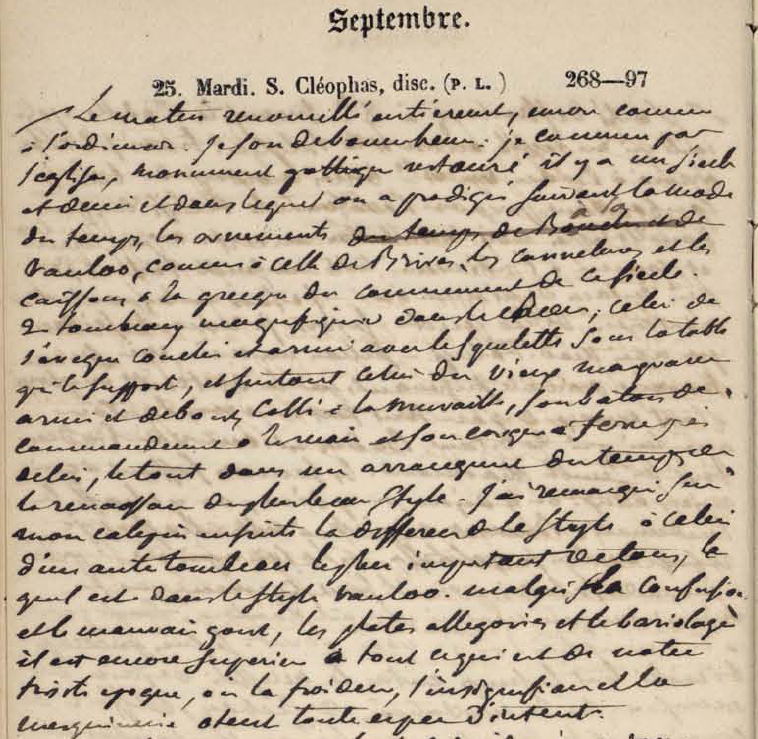 Septembre.
25. Mardi. S. Cléophas, disc. (P. L.) 268—97
Le matin renouvellé entièrement, comme
à l'ordinaire. Je sors de bonne heure : je commence par
l'église, monument gothique restauré il y a un siècle
et demi et dans lequel on a prodigué suivant la mode
du temps, les ornements du temps de et de
Vanloo, comme à celle de Brives, les cannelures et les
caissons à la grecque du commencement de ce siècle.
2 tombeaux magnifiques dans le chœur ; celui de
l'évêque couché et avec le squelette sous la table
qui le supporte, et surtout celui du vieux
armé et debout collé à la muraille, son bâton de
commandement à la main et son casque à terre près
de lui, le tout dans un arrangement du temps de
la renaissance du plus beau style. J'ai remarqué sur
mon calepin ensuite la différence de ce style à celui
d'un autre tombeau le plus important de tous, le
quel est dans le style Vanloo. malgré la confusion
et le mauvais goût, les plates allégories et le bariolage
il est encore supérieur à tout ce qui est de notre
triste époque, où la froideur, l'insignifiance et la
mesquinerie ôtent toute espèce d'intérêt.